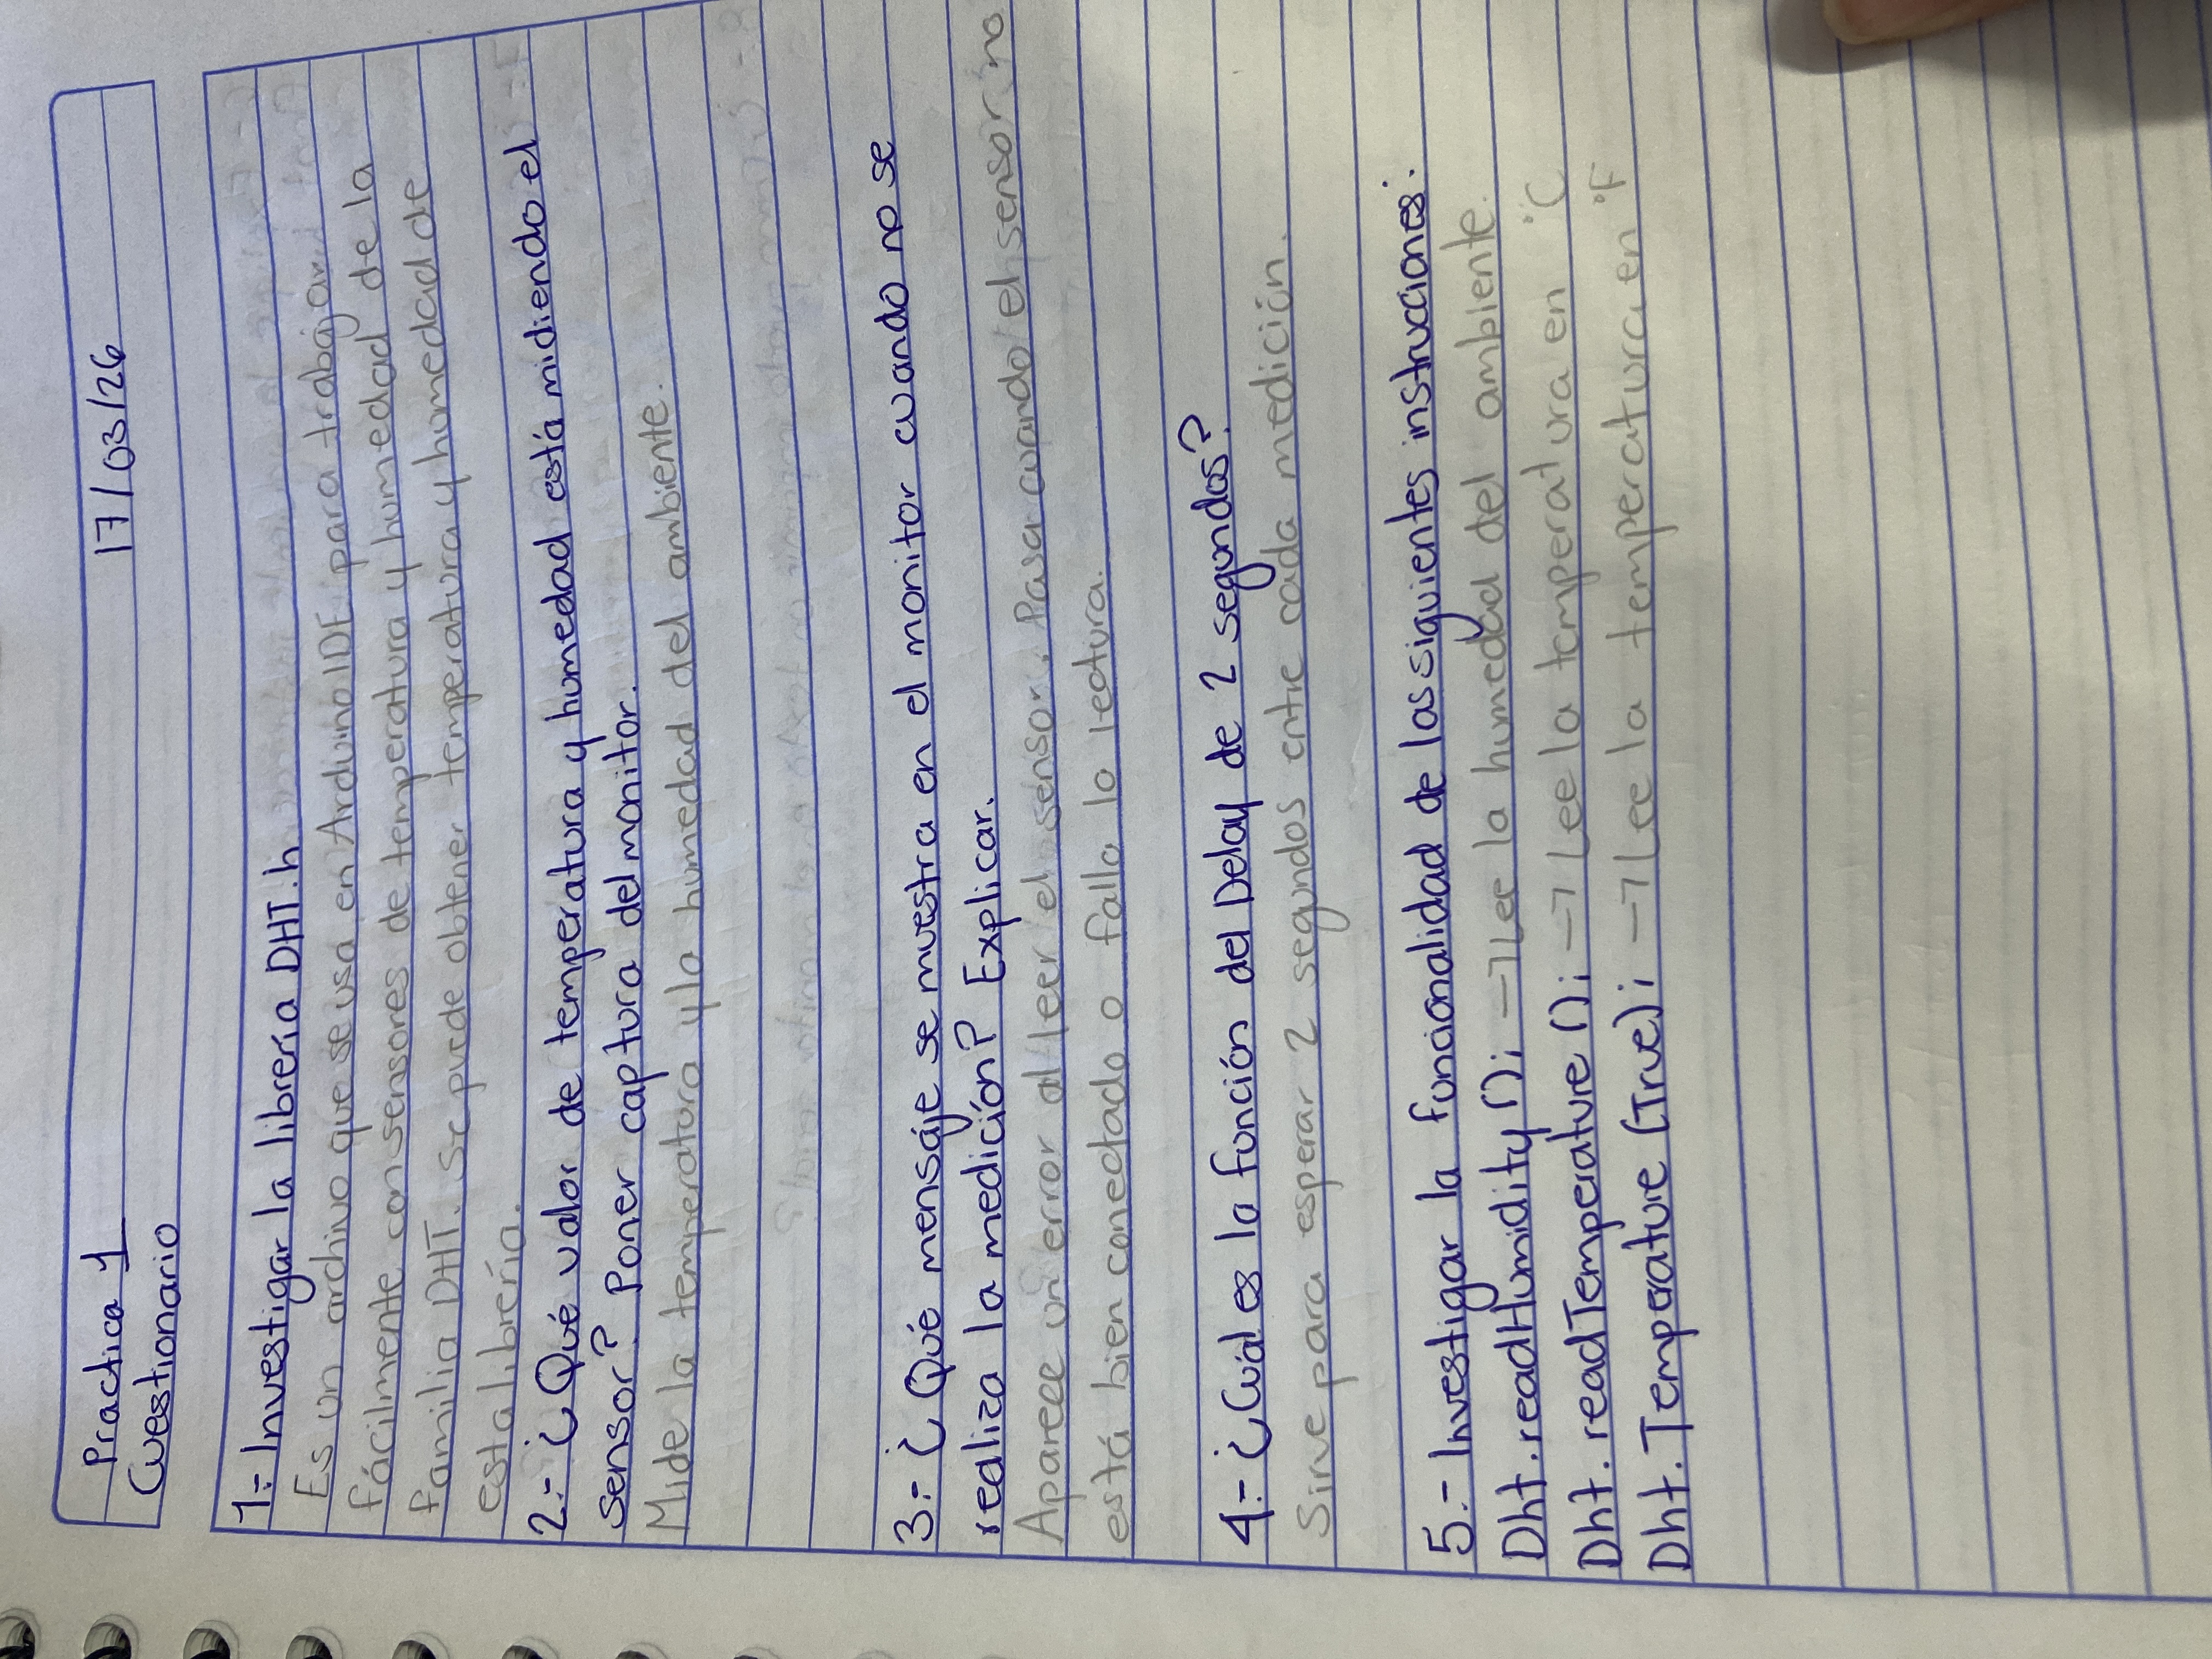 Practica 1 17/03/26
Cuestionario
1.- Investigar la librería DHT.h
Es un archivo que se usa en Arduino IDE para trabajar
fácilmente con sensores de temperatura y humedad de la
familia DHT. Se puede obtener temperatura y humedad de
esta librería.
2.- ¿Qué valor de temperatura y humedad está midiendo el
sensor? Poner captura del monitor.
Mide la temperatura y la humedad del ambiente.
3.- ¿Qué mensaje se muestra en el monitor cuando no se
realiza la medición? Explicar.
Aparece un error al leer el sensor. Pasa cuando el sensor no
está bien conectado o falla la lectura.
4.- ¿Cuál es la función del Delay de 2 segundos?
Sirve para esperar 2 segundos entre cada medición.
5.- Investigar la funcionalidad de las siguientes instrucciones:
Dht.readHumidity(); → Lee la humedad del ambiente.
Dht.readTemperature(); → Lee la temperatura en °C
Dht.Temperature(True); → Lee la temperatura en °F